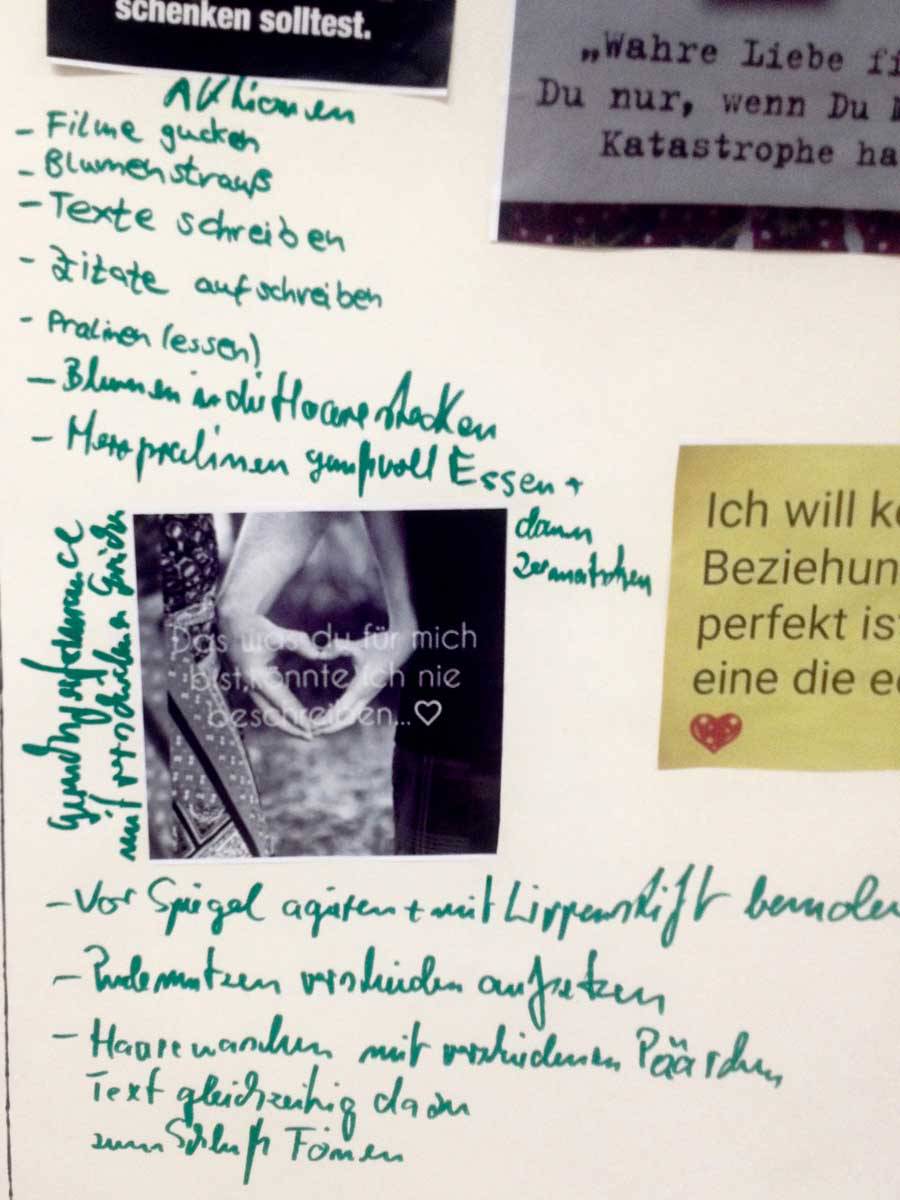 schenken solltest.
„Wahre Liebe fi
Du nur, wenn Du M
Katastrophe ha
Aktionen
- Filme gucken
- Blumenstrauß
- Texte schreiben
- Zitate aufschreiben
- Pralinen (essen)
- Blumen in die Haare stecken
- Herzpralinen genußvoll Essen +
dann
zermatschen
Das was du für mich
bist, könnte ich nie
beschreiben...♡
mit verschiedenen
Ich will ke
Beziehun
perfekt ist
eine die ec
- Vor Spiegel agieren + mit Lippenstift bemalen
- Bademützen verschieden aufsetzen
- Haare waschen mit verschiedenen Päärchen
Text gleichzeitig dazu
zum Schluß Fönen